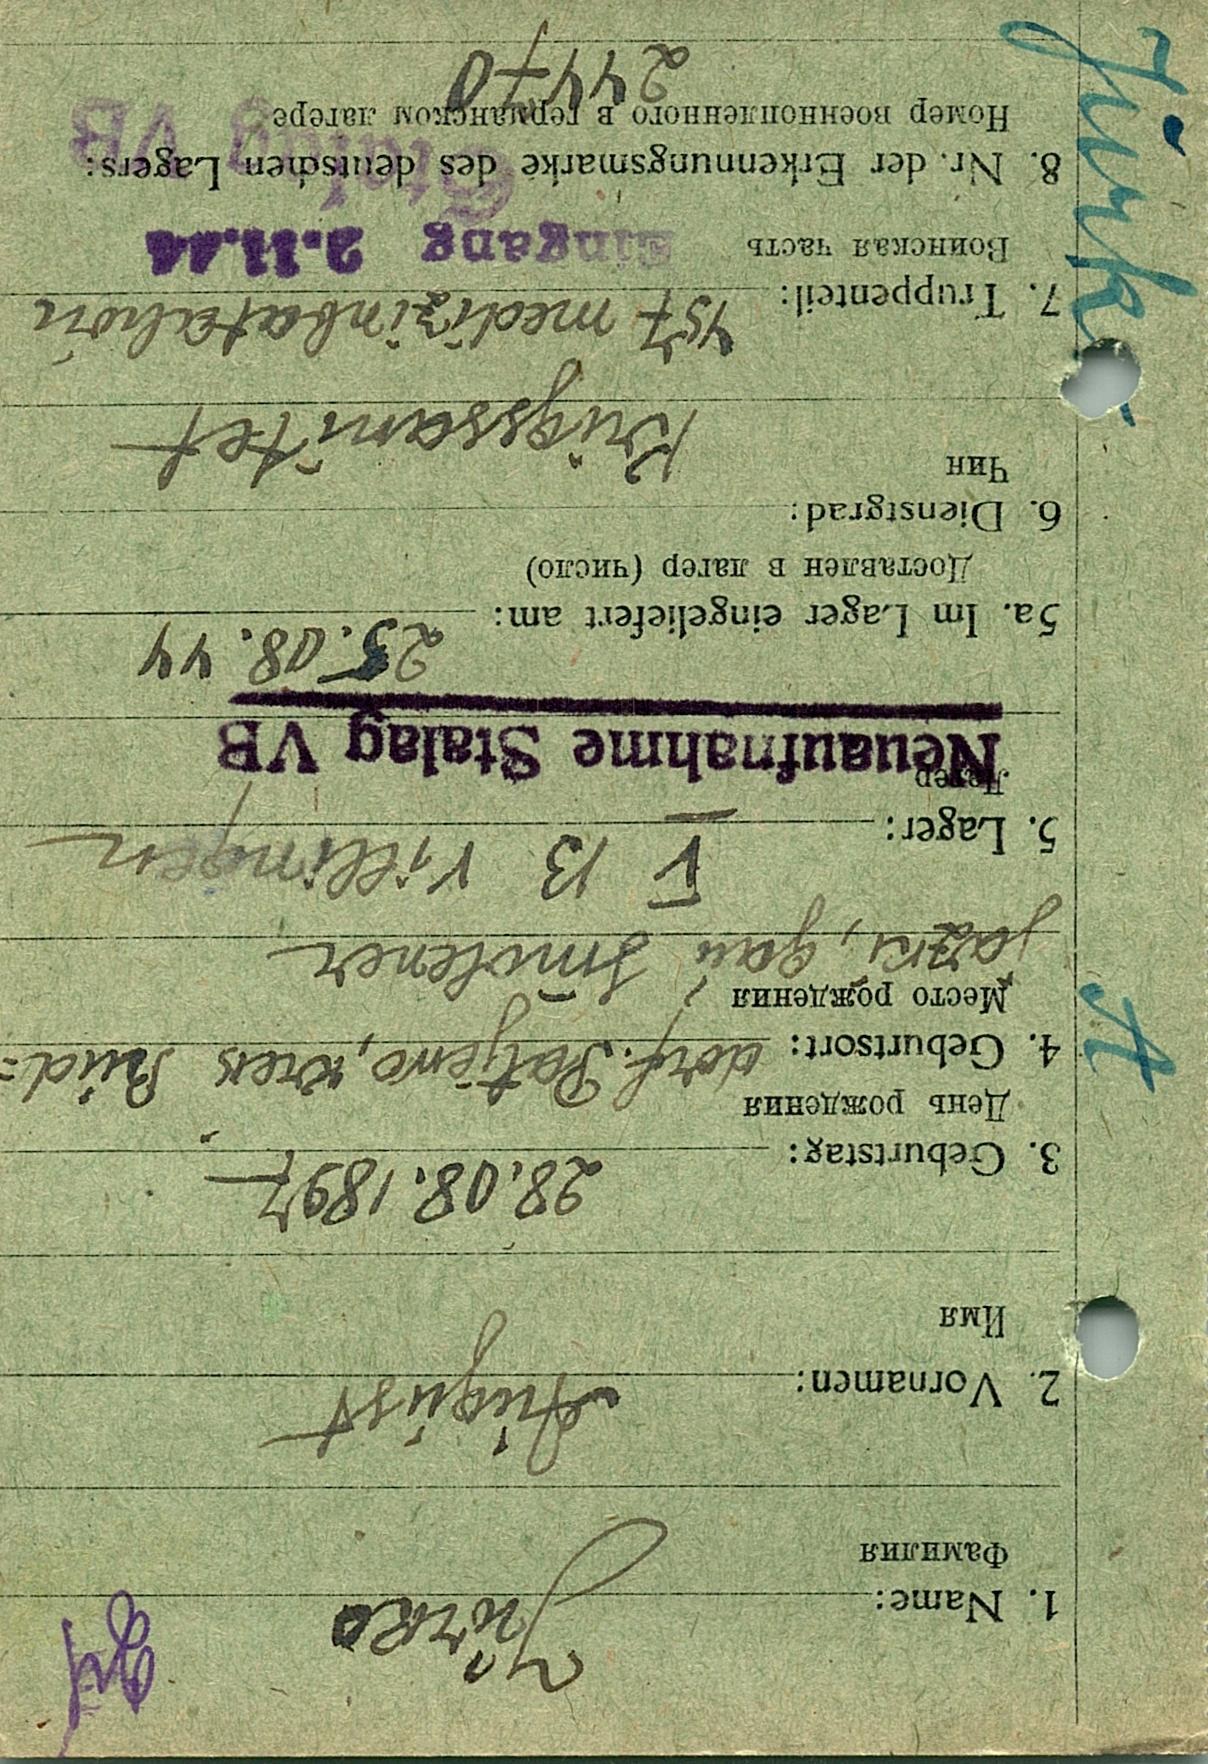 1. Name: Jürko
Фамилия
2. Vornamen: August
Имя
3. Geburtstag: 28.08.1897
День рождения
4. Geburtsort: dorf. Ratjewo, kreis Rud=
Место рождения
gau Smolener
5. Lager: V B Villingen
Лагер
Neuaufnahme Stalag VB
5a. Im Lager eingeliefert am: 25.08.44
Доставлен в лагер (число)
6. Dienstgrad:
Чин
Krigssanitet
7. Truppenteil: 457 medizinbatalion
Воинская часть
Eingang 2.11.44
8. Nr. der Erkennungsmarke des deutschen Lagers:
Stalag VB
Номер военнопленного в германском лагере
24470
Jürko
A